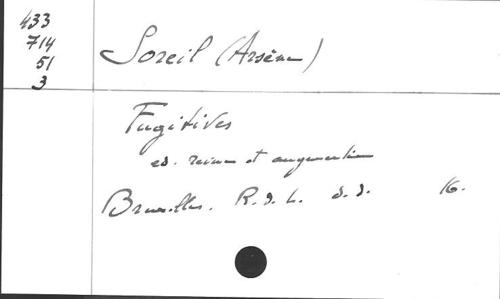 433
714
51
3
Soreil (Arsène)
Fugitives
ed. revue et augmentée
Bruxelles. R. d. L. s. d. 16.